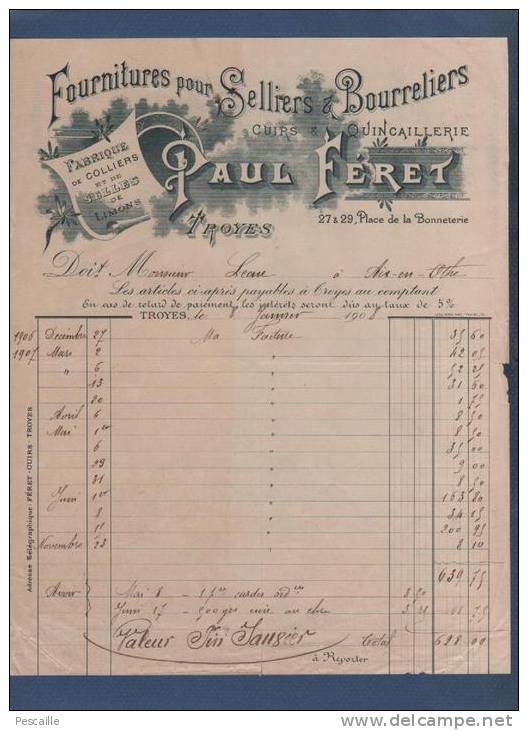 Fournitures pour Selliers & Bourreliers
CUIRS & QUINCAILLERIE
FABRIQUE
DE COLLIERS
ET DE
SELLES
DE
LIMONS
PAUL FÉRET
TROYES
27 & 29, Place de la Bonneterie
Doit Monsieur à Aix-en-Othe
Les articles ci-après payables à Troyes au comptant
En cas de retard de paiement les intérêts seront dûs au taux de 5%
TROYES, le Janvier 1908
1906 Décembre 27 Ma Facture 35 60
1907 Mars 2 " 42 05
" 6 " 52 25
13 " 31 60
20 " 1 75
Avril 6 " 8 50
Mai 1er " 8 50
6 " 35 00
29 " 9 00
31 " 8 50
Juin 1er " 163 80
8 " 34 15
11 " 200 95
Novembre 23 " 8 10
639 75
Avoir Mai 8 - cardes
Juin 17 - cuir au 75
Valeur Fin Total 628 00
à Reporter
Adresse Télégraphique: FÉRET-CUIRS-TROYES
Pescaille
www.delcampe.net